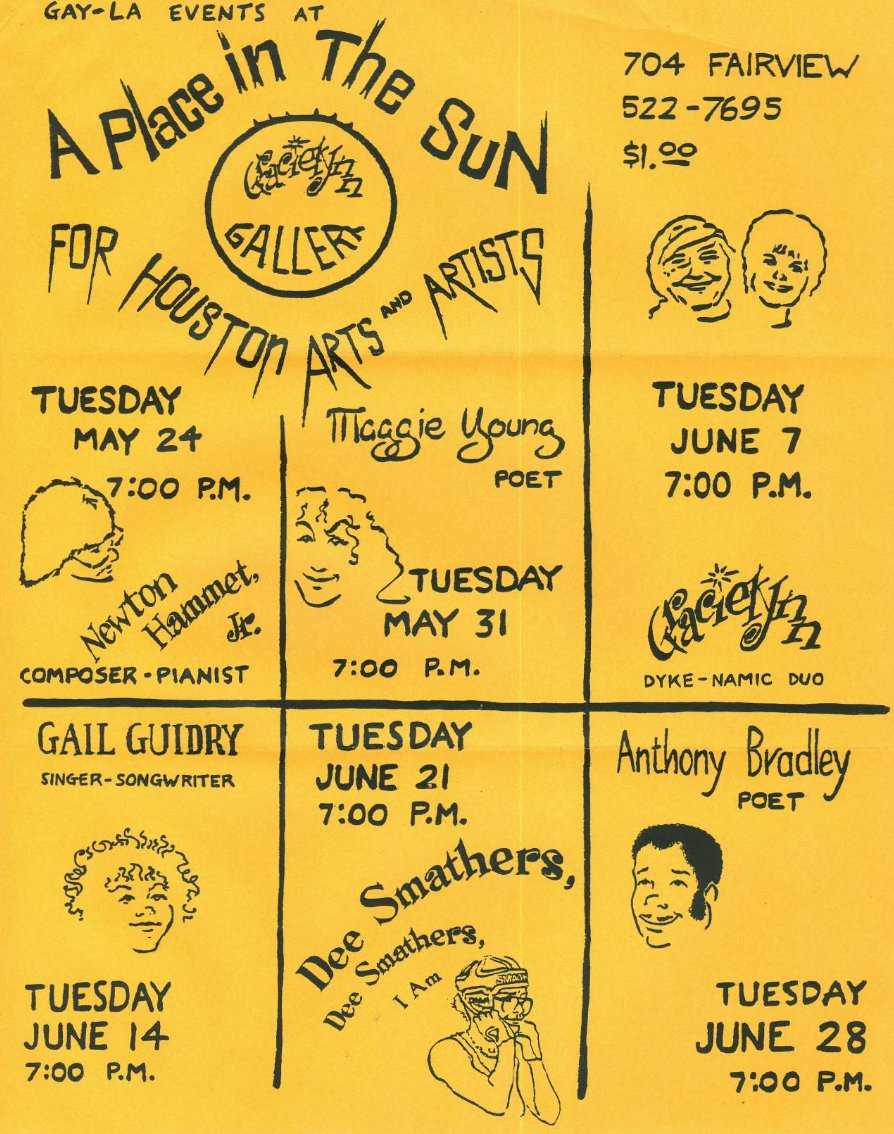 GAY-LA EVENTS AT
A Place in The Sun
GracieLynn
GALLERY
FOR HOUSTON ARTS AND ARTISTS
704 FAIRVIEW
522-7695
$1.00
TUESDAY
MAY 24
7:00 P.M.
Newton
Hammet,
Jr.
COMPOSER-PIANIST
Maggie Young
POET
TUESDAY
MAY 31
7:00 P.M.
TUESDAY
JUNE 7
7:00 P.M.
GracieLynn
DYKE-NAMIC DUO
GAIL GUIDRY
SINGER-SONGWRITER
TUESDAY
JUNE 14
7:00 P.M.
TUESDAY
JUNE 21
7:00 P.M.
Dee Smathers,
Dee Smathers,
I Am
Anthony Bradley
POET
TUESDAY
JUNE 28
7:00 P.M.